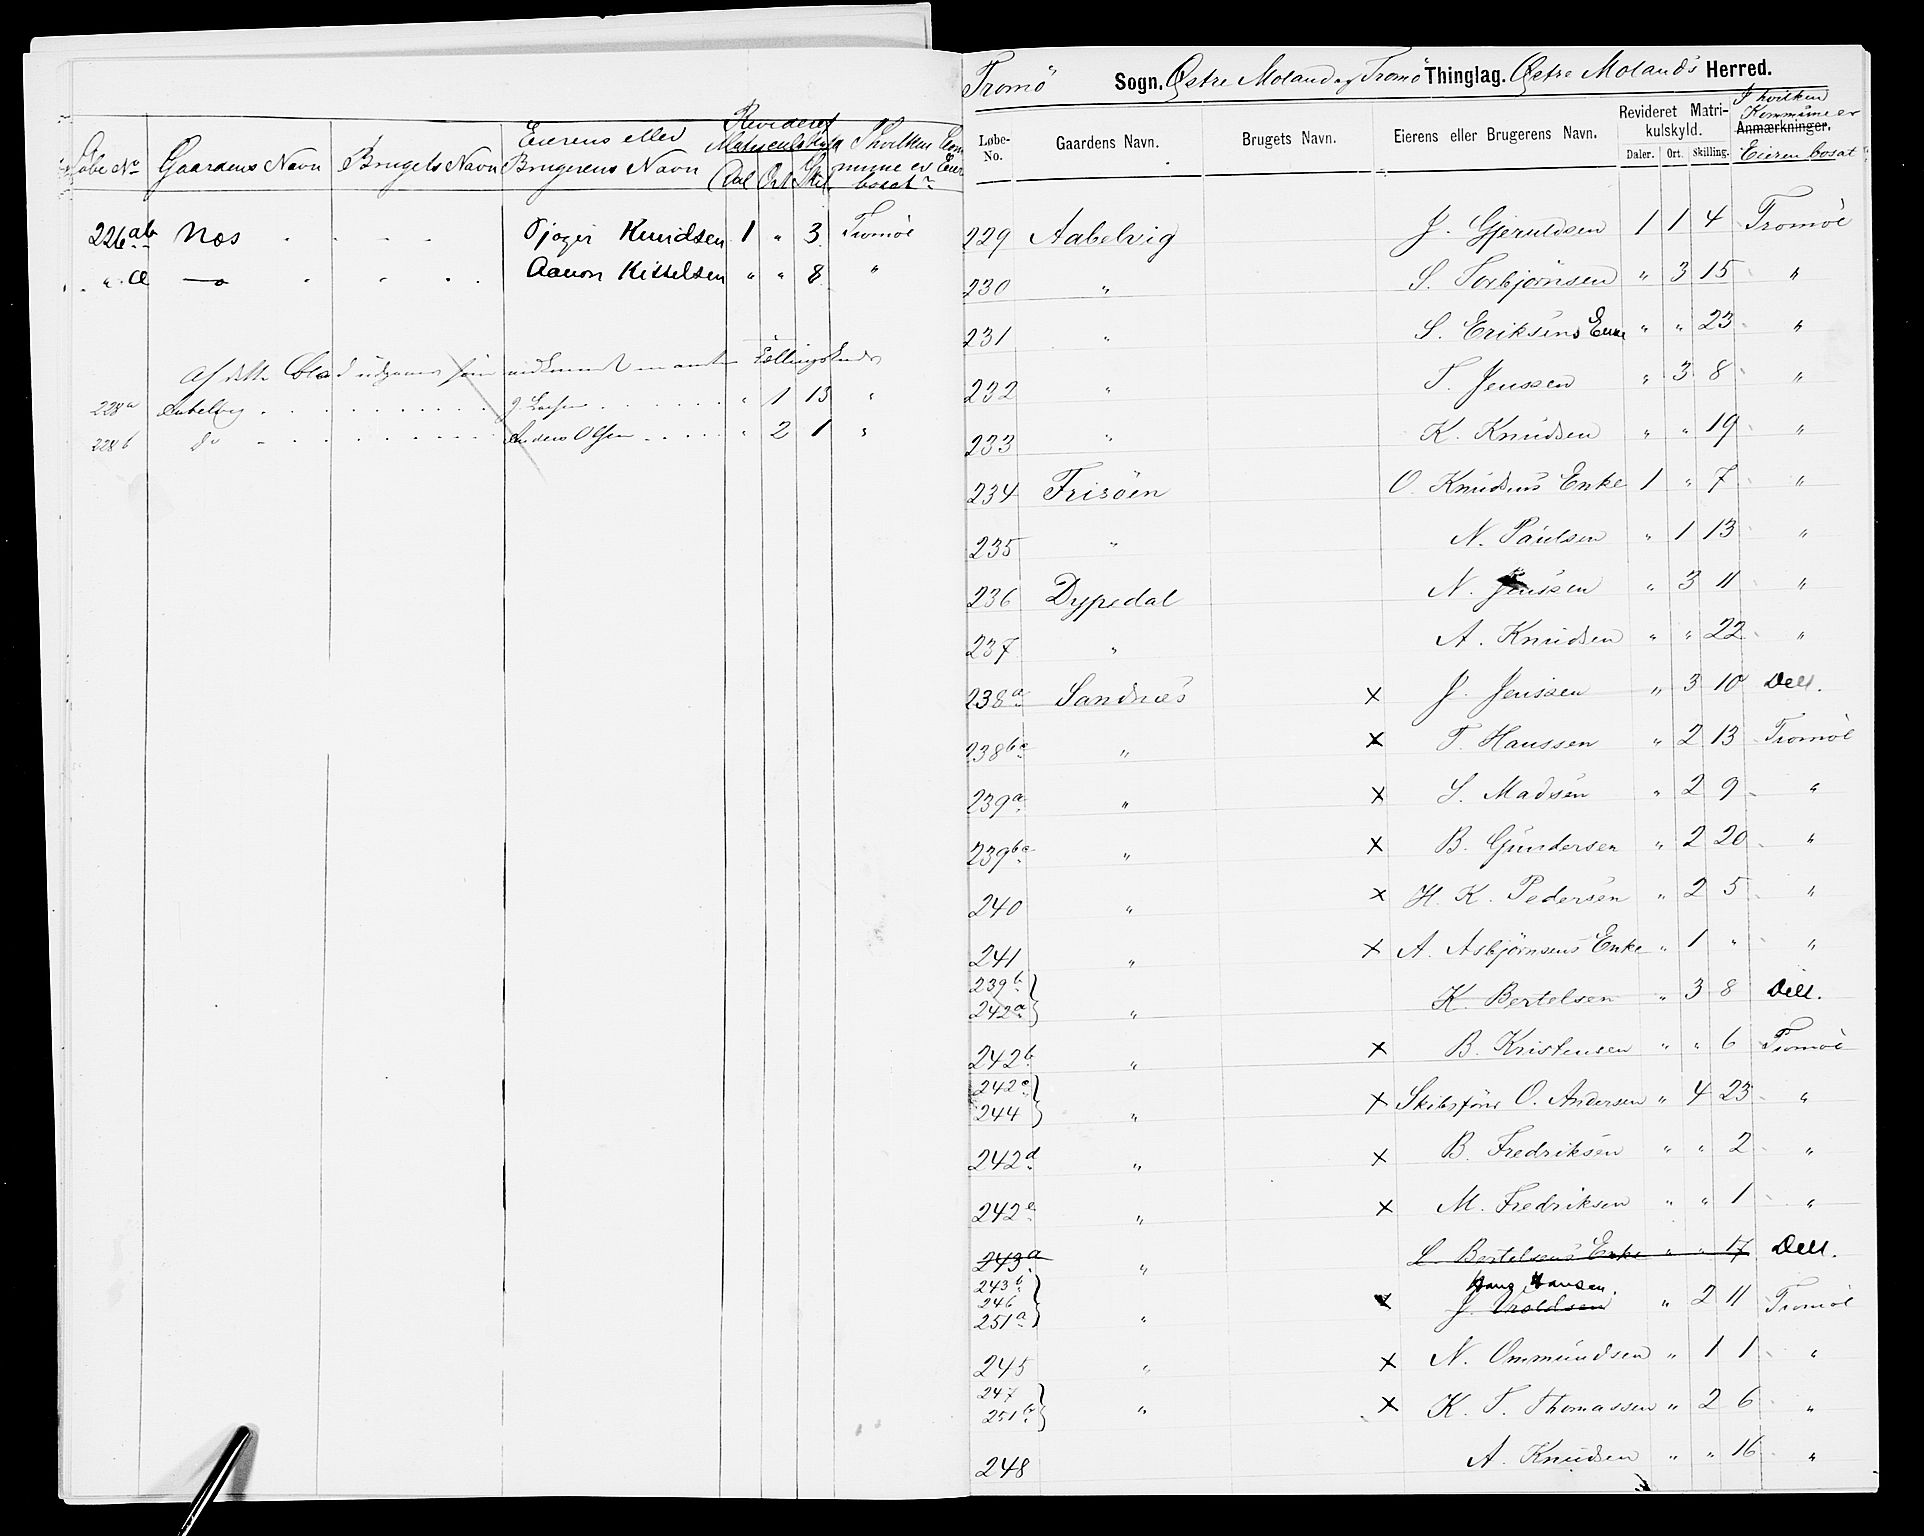 Løbe No Gaardens Navn Brugets Navn Eierens eller Brugerens Navn Revideret Matriculskyld Dal Ort Skil I hvilken Commune er Eier bosat
226 ab Næs Knudsen 1 " 3 Tromøe
" " æ — Aanon Kittelsen " " 8 "
Af dette Blad udgaaer
228a Aabelvig " 1 13 "
228b do Anders Olsen " 2 1 "
Tromö Sogn. Østre Moland og Tromö Thinglag. Østre Moland's Herred.
Løbe-No. Gaardens Navn. Brugets Navn. Eierens eller Brugerens Navn. Revideret Matrikulskyld. Daler. Ort. Skilling. Anmærkninger. I hvilken Kommune er Eieren bosat
229 Aabelvig J. Gjeruldsen 1 1 4 Tromöe
230 " S. Torbjörnsen " 3 15 "
231 " S. Eriksens Enke " " 23 "
232 " T. Jenssen " 3 8 "
233 " K. Knudsen " " 19 "
234 Frisöen O. Knudsens Enke 1 " 7 "
235 " N. Paulsen " 1 13 "
236 Dypedal N. Jenssen " 3 11 "
237 " A. Knudsen " " 22 "
238a Sandnæs x J. Jenssen " 3 10 Dell.
238bc " x T. Hanssen " 2 13 Tromöe
239a " x S. Madsen " 2 9 "
239bc " x B. Gundersen " 2 20 "
240 " x H. K. Pedersen " 2 5 "
241 " x A. Asbjörnsens Enke " 1 " "
239b
242a " K. Bertelsen " 3 8 Dell.
242b " x B. Kristensen " " 6 Tromöe
242c
244 " x Skibsförer O. Andersen " 4 23 "
242d " x B. Fredriksen " " 2 "
242e " x M. Fredriksen " " 1 "
243a " L. Bertelsens Enke " " 17 Dell.
243b Hans Hansen.
246
251a " x J. " 2 11 Tromöe
245 " x N. Ommundsen " 1 1 "
247
251b " x K. T. Thomassen " 2 6 "
248 A. Knudsen " " 16 "